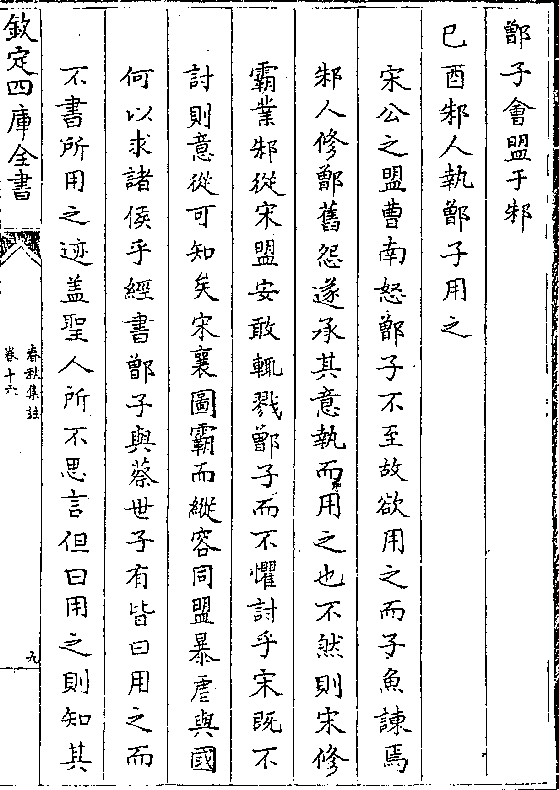 鄫子會盟于邾
己酉邾人執鄫子用之
宋公之盟曹南怒鄫子不至故欲用之而子魚諫焉
邾人修鄫舊怨遂承其意執而用之也不然則宋修
霸業邾從宋盟安敢輒戮鄫子而不懼討乎宋旣不
討則意從可知矣宋襄圖霸而縱容同盟暴虐與國
何以求諸侯乎經書鄫子與蔡世子有皆曰用之而
不書所用之迹盖聖人所不思言但曰用之則知其
欽定四庫全書
春秋集註
卷十六
九